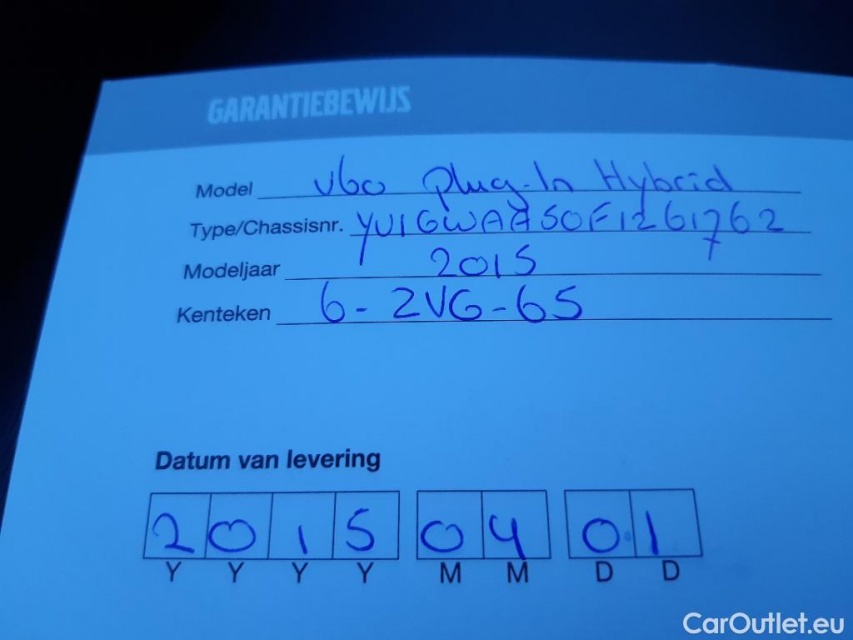 GARANTIEBEWIJS
Model V60 Plug-In Hybrid
Type/Chassisnr. YV1GWAASOF1261762
Modeljaar 2015
Kenteken 6-2VG-65
Datum van levering
2015 04 01
Y Y Y Y M M D D
CarOutlet.eu